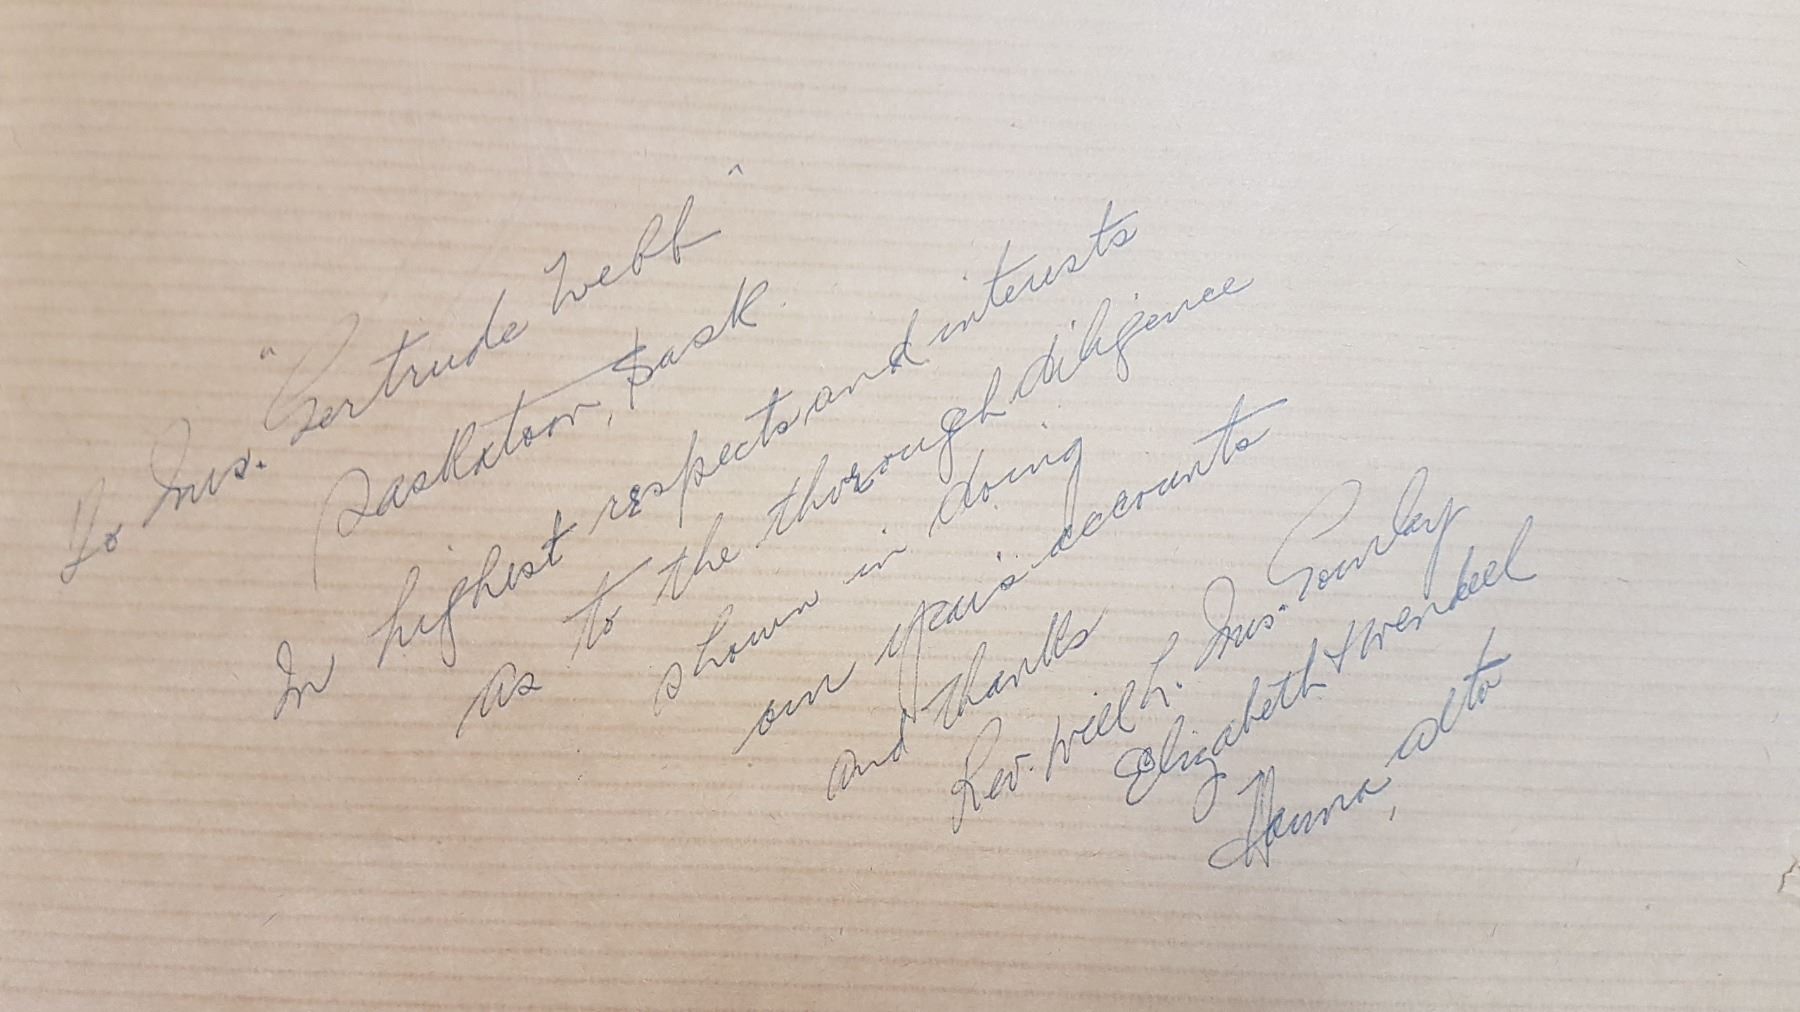 To Mrs. "Gertrude Webb"
Saskatoon, Sask.
In highest respects and interests
as to the thorough diligence
shown in doing
our year's accounts
and thanks
Rev. Will L. Mrs. Gourlay
Elizabeth + Wendell
Hanna, Alta